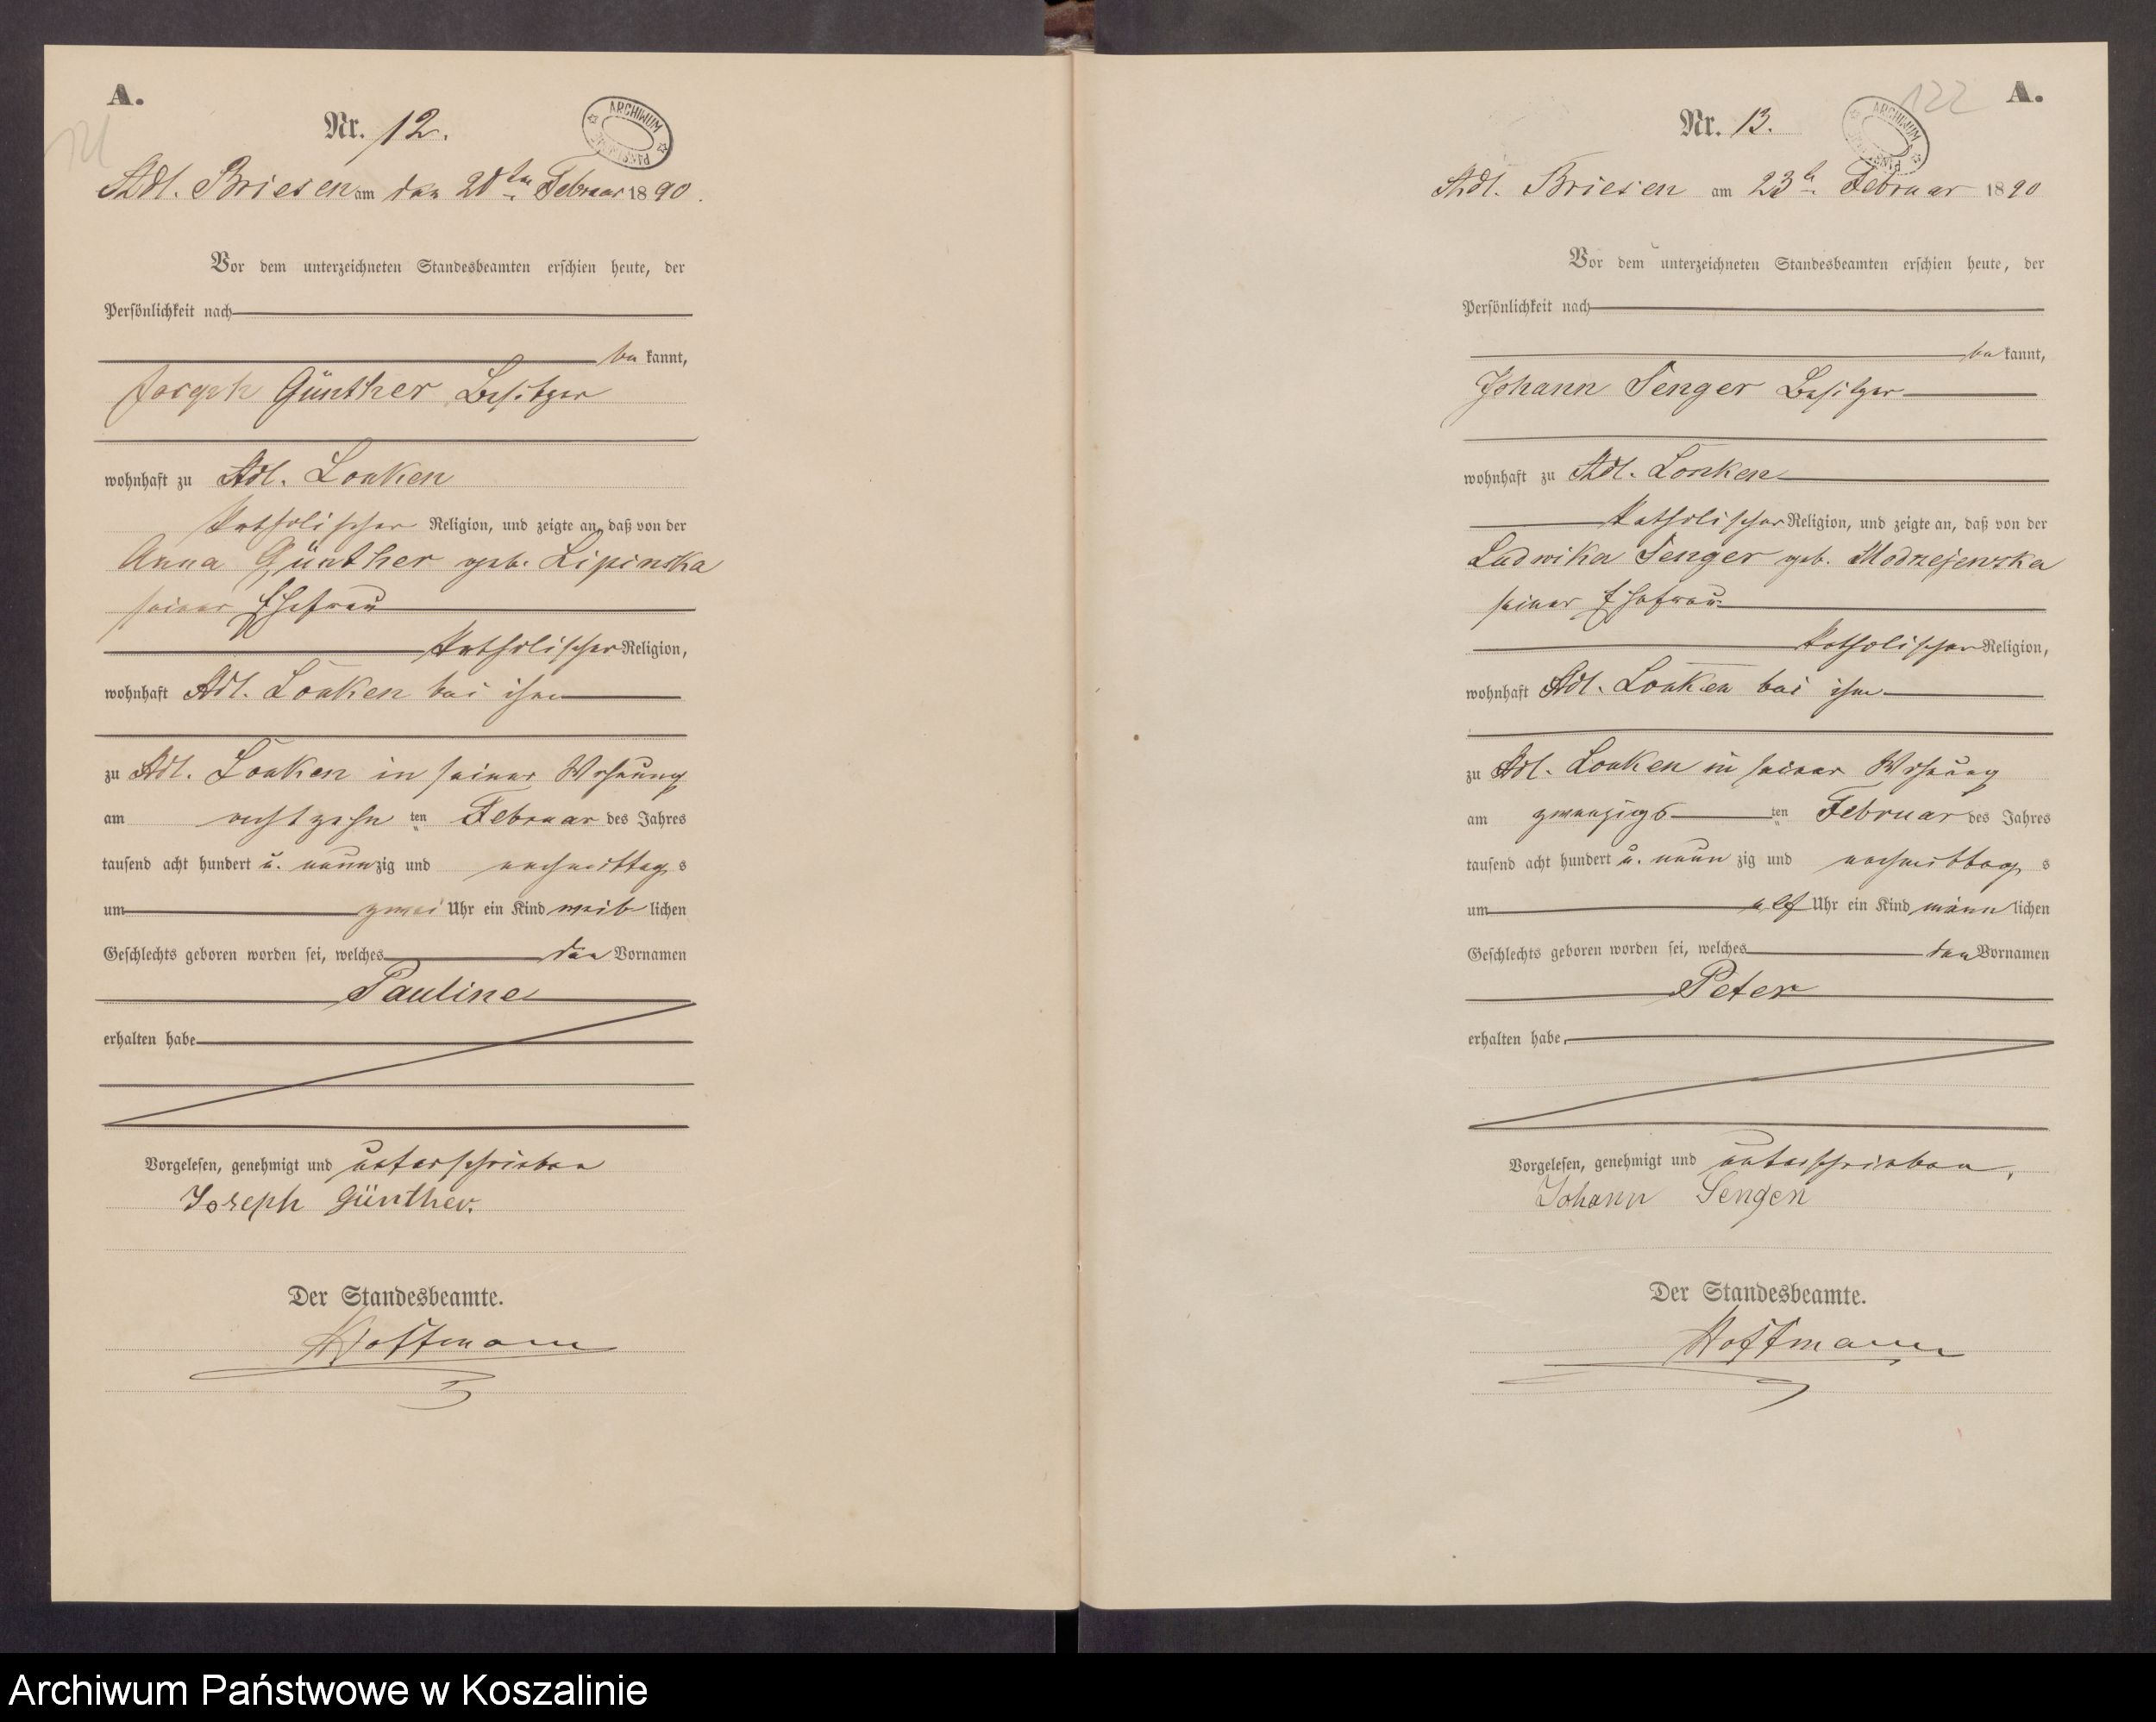 A.
121
Nr. 12.
ARCHIWUM PAŃSTWOWE
Adl. Briesen am den 20ten Februar 1890.
Vor dem unterzeichneten Standesbeamten erschien heute, der
Persönlichkeit nach
be kannt,
Joseph Günther Besitzer
wohnhaft zu Adl. Lonken
katholischer Religion, und zeigte an, daß von der
Anna Günther geb. Lipinska
seiner Ehefrau
katholischer Religion,
wohnhaft Adl. Lonken bei ihm
zu Adl. Lonken in seiner Wohnung
am achtzehn ten Februar des Jahres
tausend acht hundert u. neunzig und nachmittag s
um zwei Uhr ein Kind weib lichen
Geschlechts geboren worden sei, welches den Vornamen
Pauline
erhalten habe
Vorgelesen, genehmigt und unterschrieben
Joseph Günther.
Der Standesbeamte.
Hoffmann
122
A.
Nr. 13.
ARCHIWUM PAŃSTWOWE
Adl. Briesen am 23t. Februar 1890
Vor dem unterzeichneten Standesbeamten erschien heute, der
Persönlichkeit nach
be kannt,
Johann Senger Besitzer
wohnhaft zu Adl. Lonken
katholischer Religion, und zeigte an, daß von der
Ludwika Senger geb. Modrzejewska
seiner Ehefrau
katholischer Religion,
wohnhaft Adl. Lonken bei ihm
zu Adl. Lonken in seiner Wohnung
am zwanzigs ten Februar des Jahres
tausend acht hundert u. neun zig und nachmittag s
um elf Uhr ein Kind männ lichen
Geschlechts geboren worden sei, welches den Vornamen
Peter
erhalten habe,
Vorgelesen, genehmigt und unterschrieben,
Johann Sengen
Der Standesbeamte.
Hoffmann
Archiwum Państwowe w Koszalinie